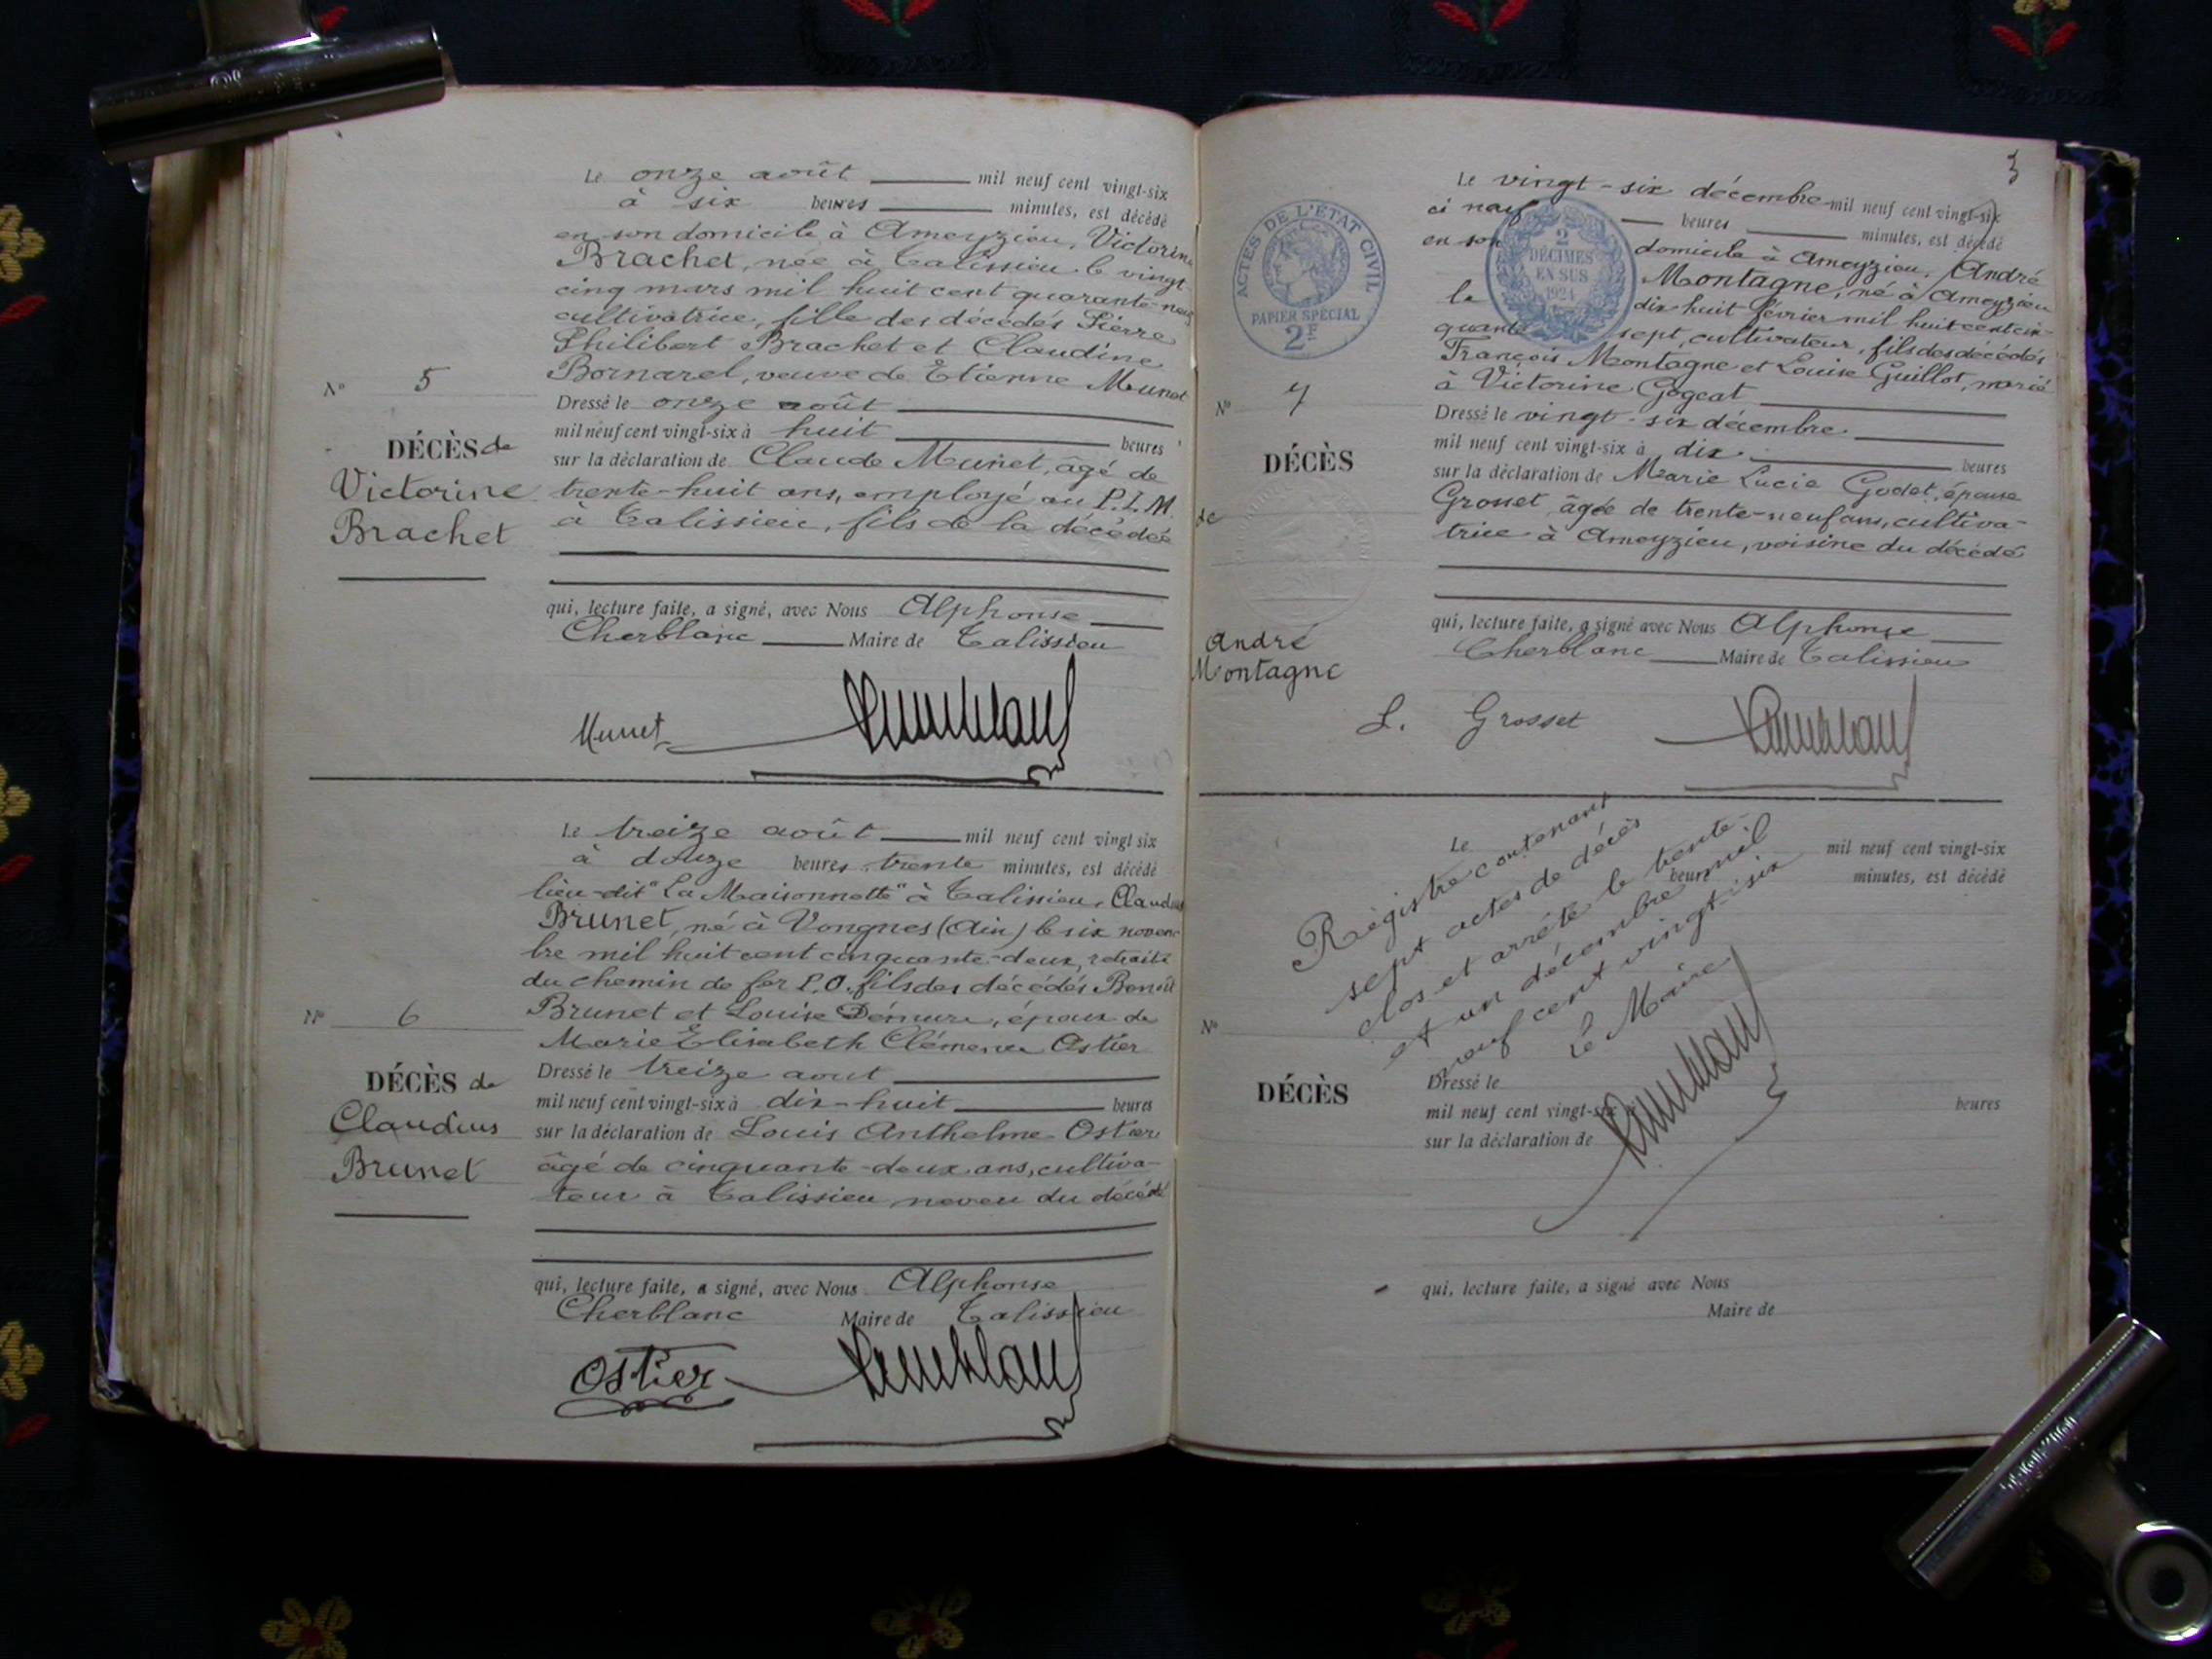 Le onze août mil neuf cent vingt-six
à six heures minutes, est décédé
en son domicile à Ameyzieu, Victorine
Brachet, née à Talissieu le vingt
cinq mars mil huit cent quarante-neuf
cultivatrice, fille des décédés Pierre
Philibert Brachet et Claudine
Bornarel, veuve de Etienne Munet
N° 5
Dressé le onze août
mil neuf cent vingt-six à huit heures
DÉCÈS de
Victorine
Brachet
sur la déclaration de Claude Munet, âgé de
trente-huit ans, employé au P.L.M.
à Talissieu, fils de la décédée
qui, lecture faite, a signé, avec Nous Alphonse
Cherblanc Maire de Talissieu
Munet
Cherblanc
Le treize août mil neuf cent vingt six
à douze heures trente minutes, est décédé
lieu-dit "La Maisonnette" à Talissieu, Claudius
Brunet, né à Vongnes (Ain) le six novem
bre mil huit cent cinquante-deux, retraité
du chemin de fer P.O. fils des décédés Benoît
Brunet et Louise Démure, époux de
Marie Elisabeth Clémence Ostier
N° 6
DÉCÈS de
Claudius
Brunet
Dressé le treize aout
mil neuf cent vingt-six à dix-huit heures
sur la déclaration de Louis Anthelme Ostier
âgé de cinquante-deux ans, cultiva-
teur à Talissieu, neveu du décédé
qui, lecture faite, a signé, avec Nous Alphonse
Cherblanc Maire de Talissieu
Ostier
Cherblanc
3
ACTES DE L'ÉTAT CIVIL
PAPIER SPÉCIAL
2F
2
DÉCIMES
EN SUS
1924
Le vingt-six décembre mil neuf cent vingt-six
à neuf heures minutes, est décédé
en son domicile à Ameyzieu, André
Montagne, né à Ameyzieu
le dix huit février mil huit cent cin-
quante sept, cultivateur, fils des décédés
François Montagne et Louise Guillot, marié
à Victorine Gogeat
N° 7
DÉCÈS
de
André
Montagne
Dressé le vingt-six décembre
mil neuf cent vingt-six à dix heures
sur la déclaration de Marie Lucie Godet, épouse
Grosset, âgée de trente-neuf ans, cultiva-
trice à Ameyzieu, voisine du décédé
qui, lecture faite, a signé avec Nous Alphonse
Cherblanc Maire de Talissieu
L. Grosset
Cherblanc
Le mil neuf cent vingt-six
heures minutes, est décédé
Registre contenant
sept actes de décès
clos et arrêté le trente-
et un décembre mil
neuf cent vingt-six
Le Maire
Cherblanc
N°
DÉCÈS
Dressé le
mil neuf cent vingt-six à heures
sur la déclaration de
qui, lecture faite, a signé avec Nous
Maire de